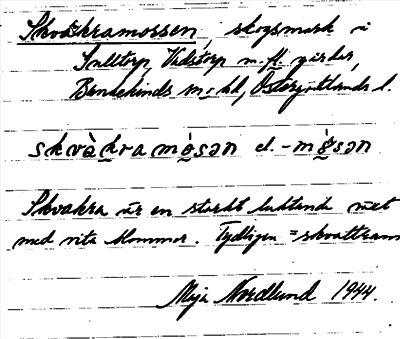 Skvåkramossen, skogsmark i
Sulltorp, Vidstorp m. fl. gårdar,
Bankekinds sn o hd, Östergötlands l.
skvàkramòsən el. -mòsən
Skvakra är en starkt luktande växt
med vita blommor. Tydligen = skvattram
Maja Nordlund 1944.